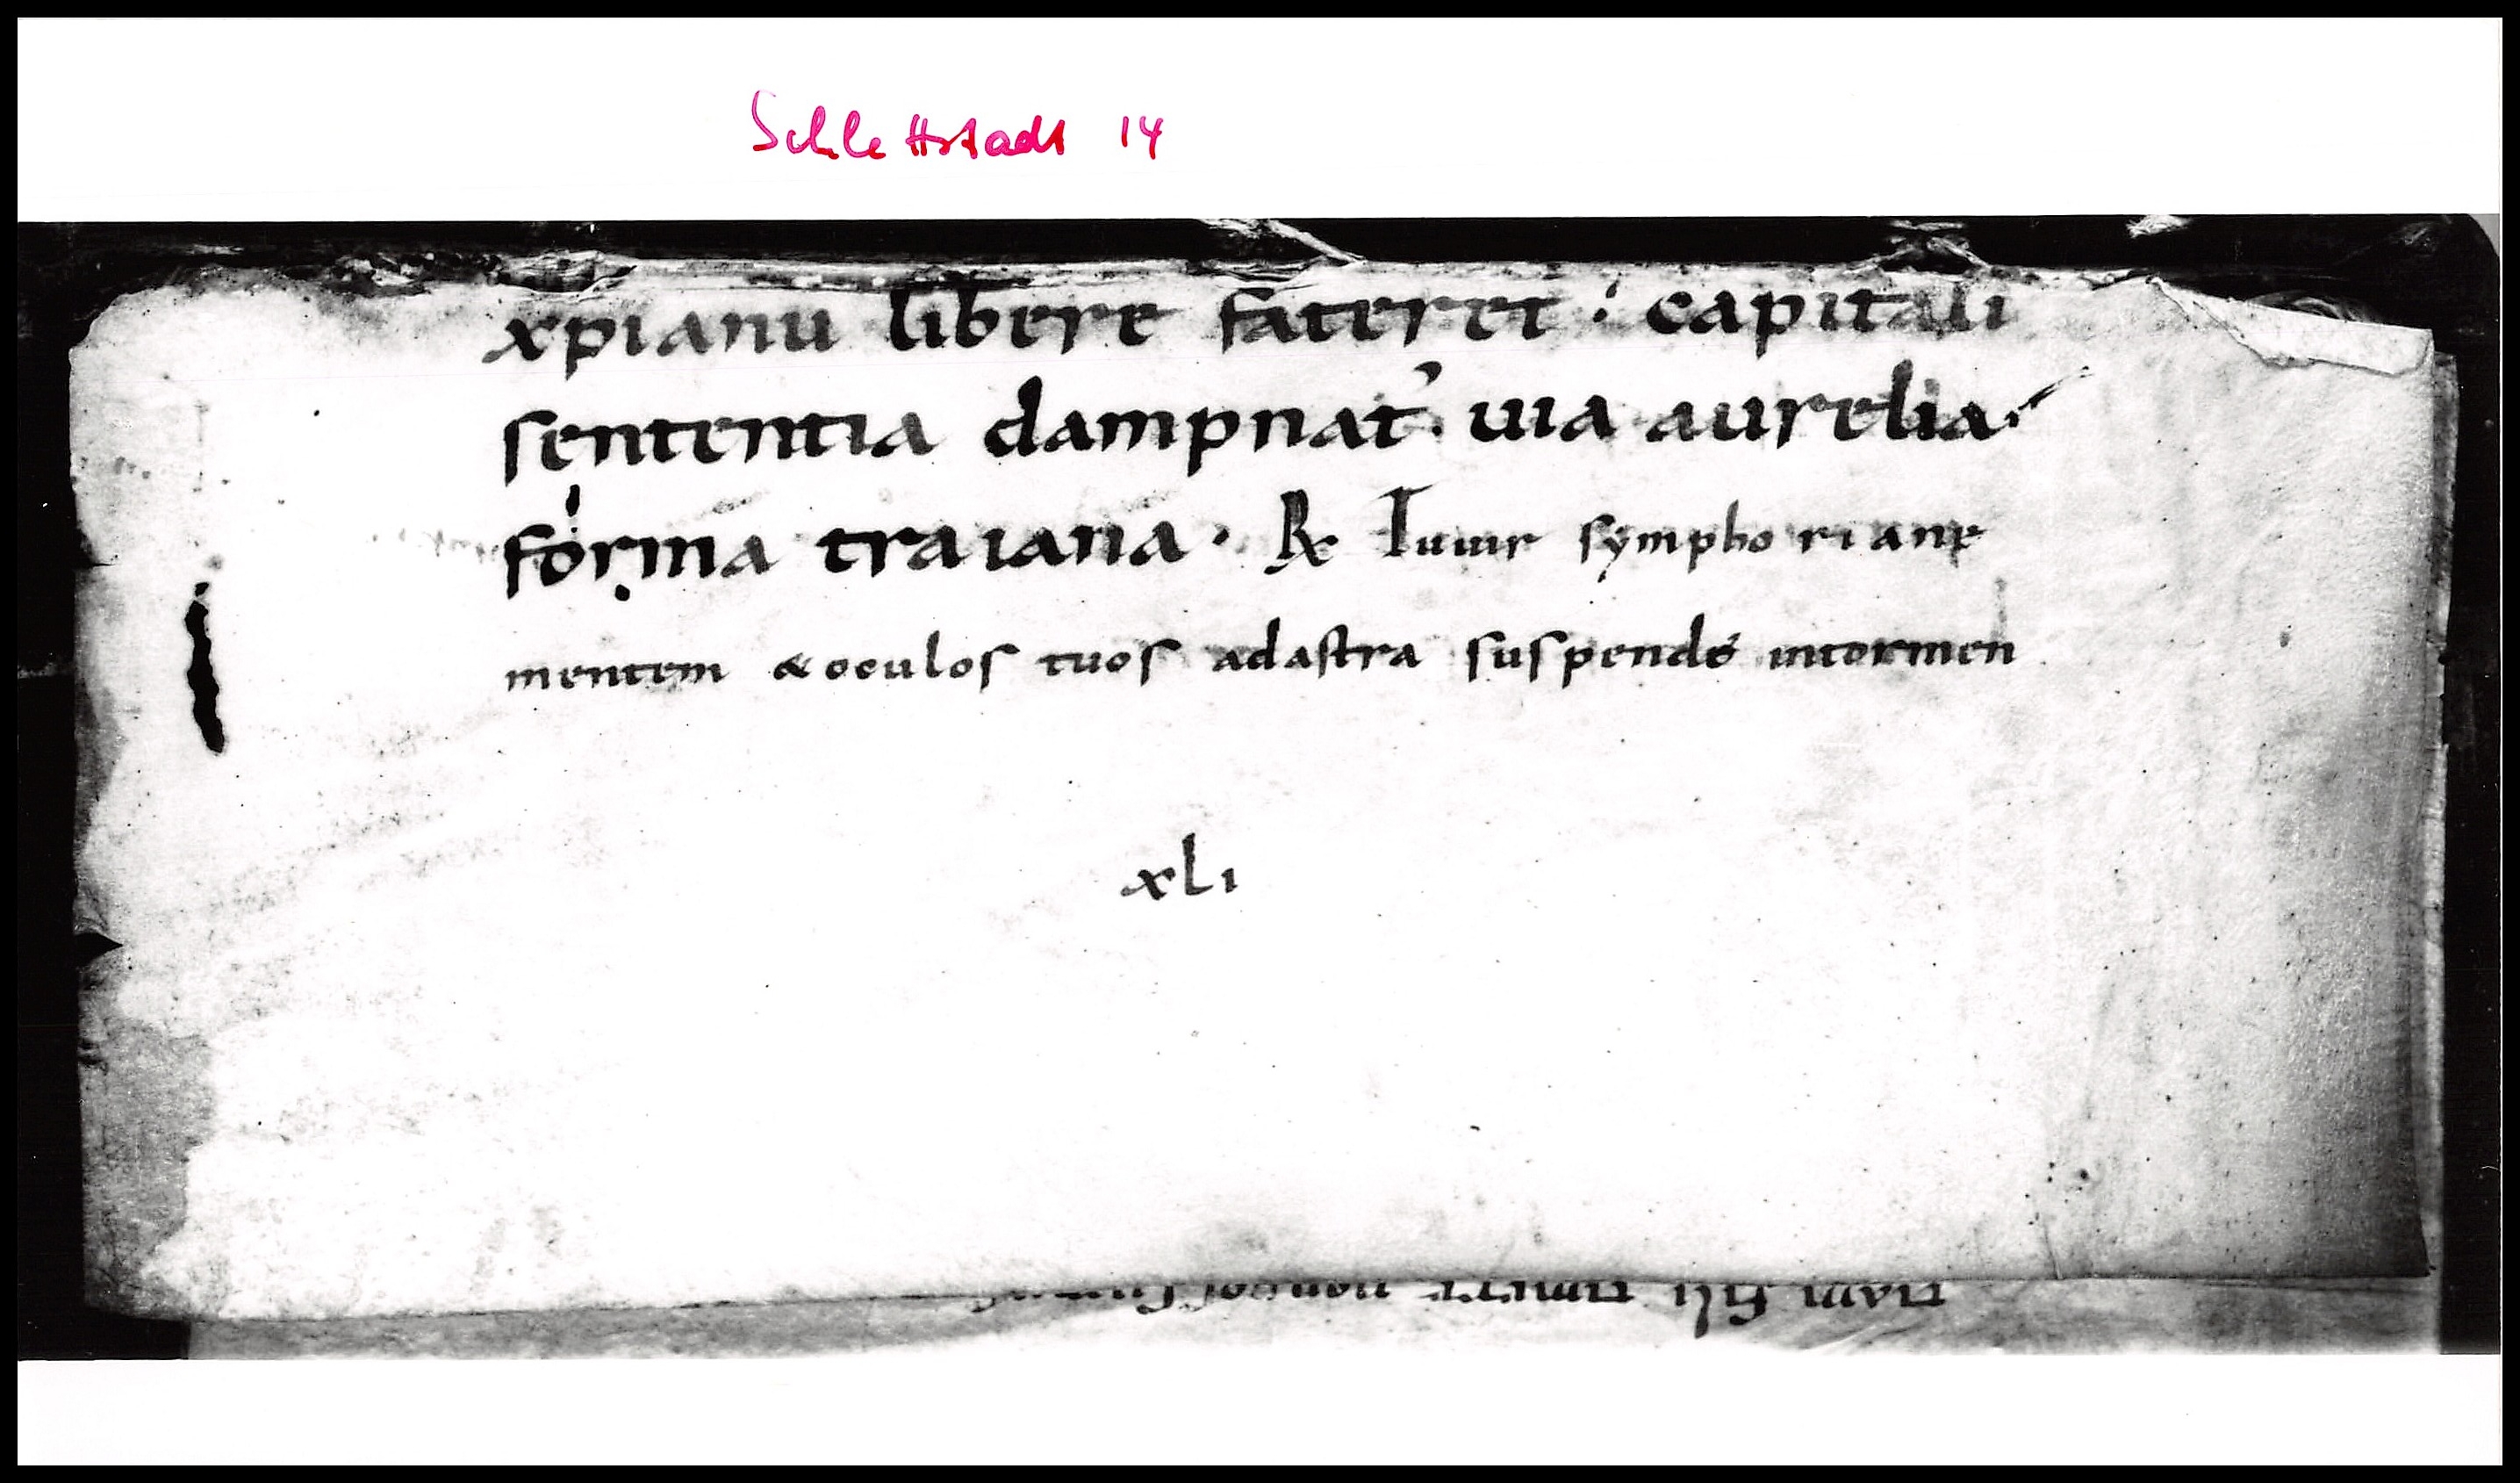 Schlettstadt 14
xpianu libere fateret : capitali
sententia dampnat᾽. uia aurelia.
forma traiana. R Iuuir symphoriane
mentem & oculos tuos ad astra suspende in tormen
xLi